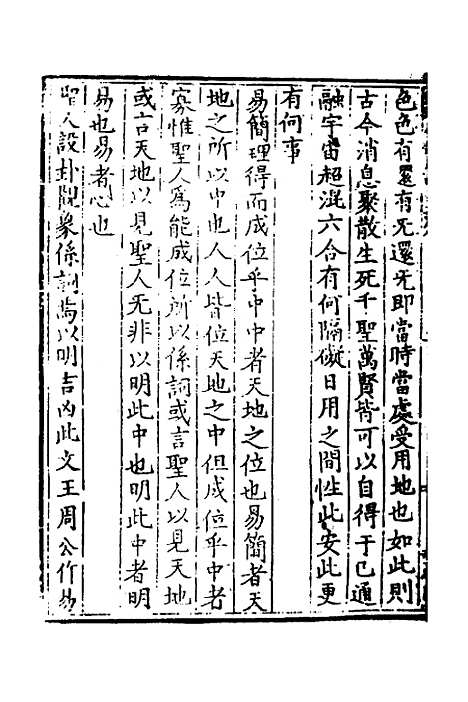 色色有還有无還无即當時當處受用地也如此則
古今消息聚散生死千聖萬賢皆可以自得于已通
融宇宙超混六合有何隔礙日用之間性此安此更
有何事
易簡理得而成位乎中中者天地之位也易簡者天
地之所以中也人人皆位天地之中但成位乎中者
寡惟聖人爲能成位所以係詞或言聖人以見天地
或言天地以見聖人无非以明此中也明此中者明
易也易者心也
聖人設卦觀象係詞焉以明吉凶此文王周公作易